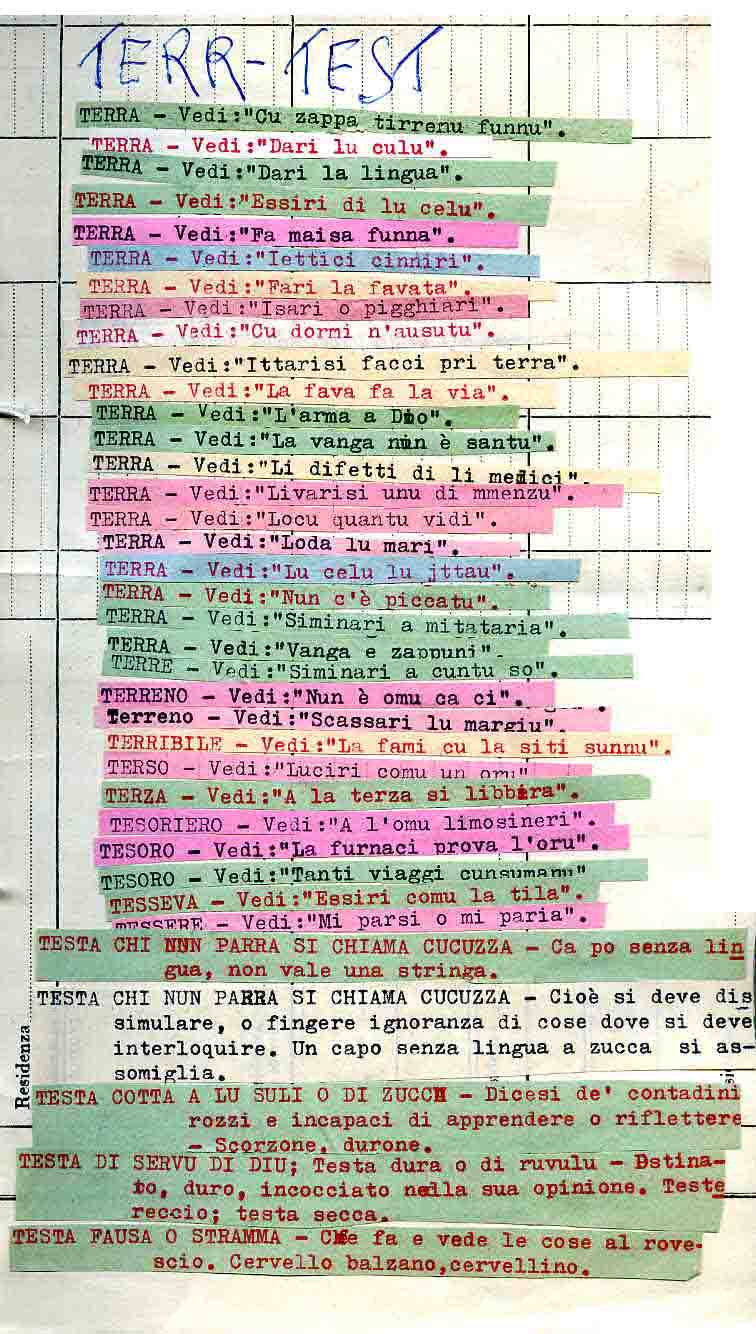 TERR-TEST
TERRA - Vedi:"Cu zappa tirrenu funnu".
TERRA - Vedi:"Dari lu culu".
TERRA - Vedi:"Dari la lingua".
TERRA - Vedi:"Essiri di lu celu".
TERRA - Vedi:"Fa maisa funna".
TERRA - Vedi:"Iettici cinniri".
TERRA - Vedi:"Fari la favata".
TERRA - Vedi:"Isari o pigghiari".
TERRA - Vedi:"Cu dormi n'ausutu".
TERRA - Vedi:"Ittarisi facci pri terra".
TERRA - Vedi:"La fava fa la via".
TERRA - Vedi:"L'arma a Dio".
TERRA - Vedi:"La vanga nun è santu".
TERRA - Vedi:"Li difetti di li medici".
TERRA - Vedi:"Livarisi unu di mmenzu".
TERRA - Vedi:"Locu quantu vidi".
TERRA - Vedi:"Loda lu mari".
TERRA - Vedi:"Lu celu lu jttau".
TERRA - Vedi:"Nun c'è piccatu".
TERRA - Vedi:"Siminari a mitataria".
TERRA - Vedi:"Vanga e zappuni".
TERRE - Vedi:"Siminari a cuntu so".
TERRENO - Vedi:"Nun è omu ca ci".
Terreno - Vedi:"Scassari lu margiu".
TERRIBILE - Vedi:"La fami cu la siti sunnu".
TERSO - Vedi:"Luciri comu un oru"
TERZA - Vedi:"A la terza si libbira".
TESORIERO - Vedi:"A l'omu limosineri".
TESORO - Vedi:"La furnaci prova l'oru".
TESORO - Vedi:"Tanti viaggi cunsumanu"
TESSEVA - Vedi:"Essiri comu la tila".
TESSERE - Vedi:"Mi parsi o mi paria".
TESTA CHI NUN PARRA SI CHIAMA CUCUZZA - Ca po senza lin
gua, non vale una stringa.
TESTA CHI NUN PARRA SI CHIAMA CUCUZZA - Cioè si deve dis
simulare, o fingere ignoranza di cose dove si deve
interloquire. Un capo senza lingua a zucca si as-
somiglia.
Residenza
TESTA COTTA A LU SULI O DI ZUCCH - Dicesi de' contadini
rozzi e incapaci di apprendere o riflettere
- Scorzone, durone.
TESTA DI SERVU DI DIU; Testa dura o di ruvulu - Ostina-
to, duro, incocciato nella sua opinione. Teste
reccio; testa secca.
TESTA FAUSA O STRAMMA - Che fa e vede le cose al rove-
scio. Cervello balzano,cervellino.